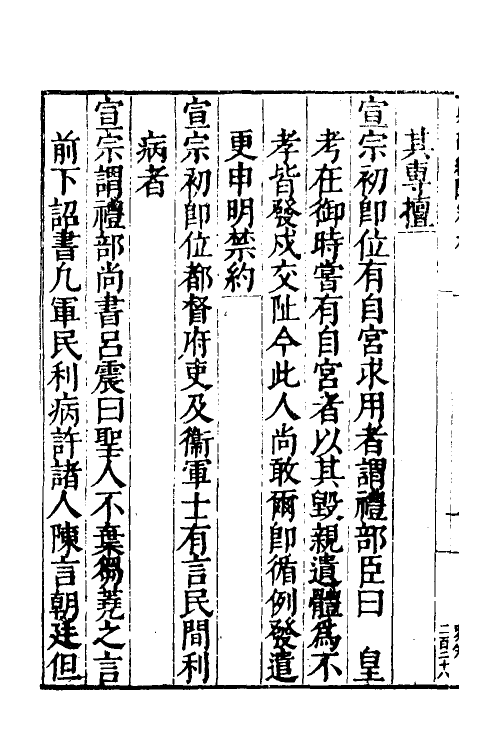 其專擅
宣宗初卽位有自宮求用者謂禮部臣曰 皇
考在御時嘗有自宮者以其毀親遺體爲不
孝皆發戍交阯今此人尚敢爾卽循例發遣
更申明禁約
宣宗初卽位都督府吏及衞軍士有言民間利
病者
宣宗謂禮部尚書呂震曰聖人不棄芻蕘之言
前下詔書凡軍民利病許諸人陳言朝廷但
二百二十八